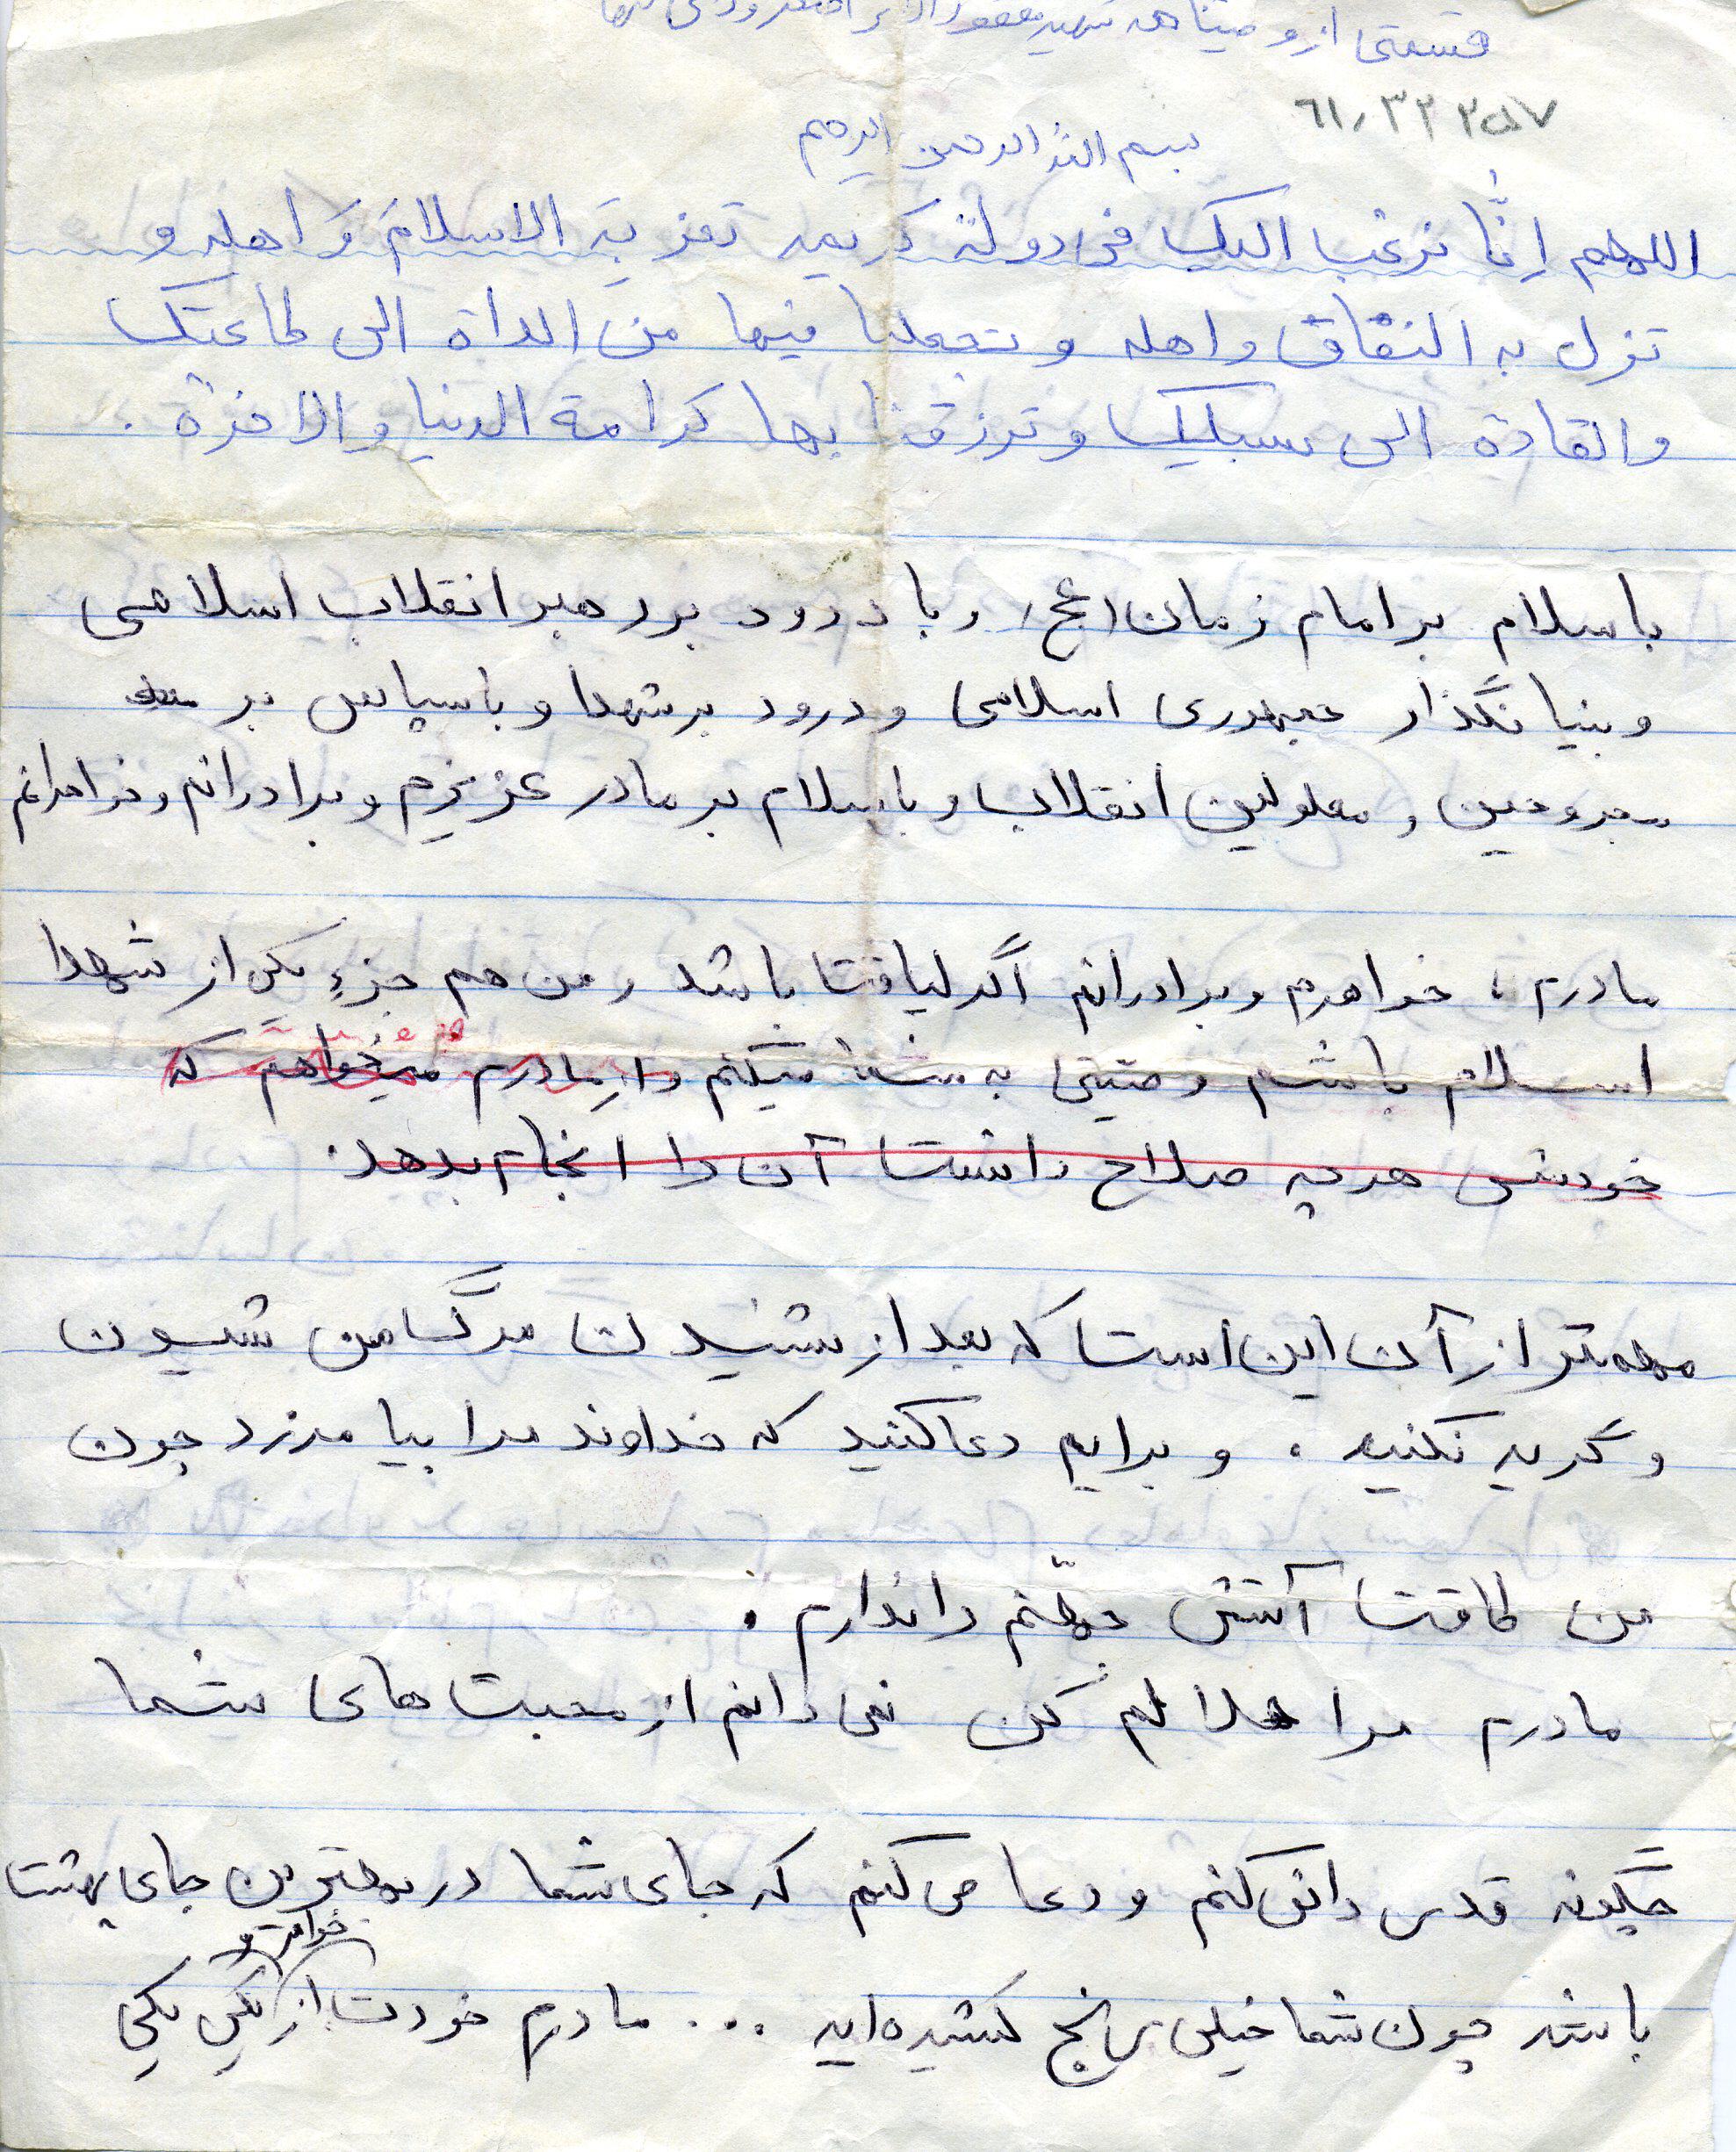 قسمتی از وصیتنامه شهید
٦١٫٣٢٢٥٧
بسم الله الرحمن الرحیم
اللهم اِنّا نرغب الیک فی دولة کریمه تعز به الاسلامَ وَ اهله و
تزل به النفاق و اهله و تجعلنا فیها من الداة الی طاعتک
والقادة الی سبلیک و ترزقنا بها کرامة الدنیا و الاخرة .
با سلام بر امام زمان (عج) و با درود بر رهبر انقلاب اسلامی
و بنیانگذار جمهوری اسلامی و درود بر شهدا و با سپاس بر
مجروحین و معلولین انقلاب و با سلام بر مادر عزیزم و برادرانم و خواهرانم
مادرم ، خواهرم و برادرانم اگر لیاقت باشد و من هم جزءِ یکی از شهدا
اسلام باشم وصیتی به شما میکنم و از مادرم میخواهم که
خودش هر چه صلاح دانست آن را انجام بدهد.
مهمتر از آن این است که بعد از شنیدن مرگ من شیون
و گریه نکنید ، و برایم دعا کنید که خداوند مرا بیامرزد چون
من طاقت آتش جهنّم را ندارم .
مادرم مرا حلالم کن نمی دانم از محبت های شما
چگونه قدر دانی کنم و دعا می کنم که جای شما در بهترین جای بهشت
باشد چون شما خیلی رنج کشیده اید ... مادرم خودت از یکی یکی
خواهر و